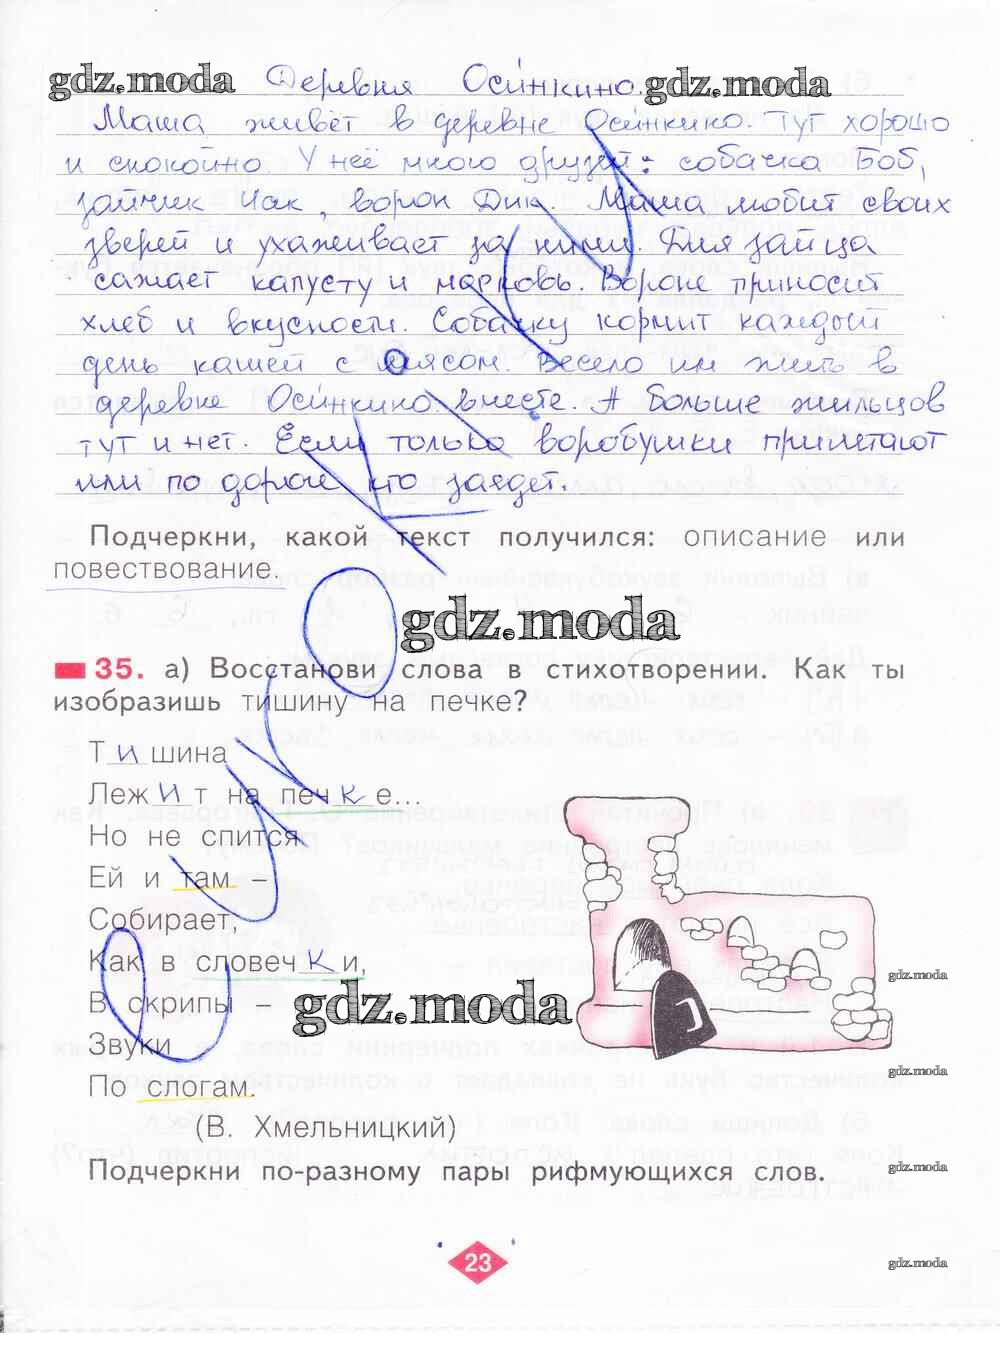 gdz.moda Деревня Оси́нкино. gdz.moda
Маша живёт в деревне Оси́нкино. Тут хорошо
и спокойно. У неё много друзей: собачка Боб,
зайчик Чак, ворон Дик. Маша любит своих
зверей и ухаживает за ними. Для зайца
сажает капусту и морковь. Вороне приносит
хлеб и вкусности. Собачку кормит каждый
день кашей с мясом. Весело им жить в
деревне Оси́нкино вместе. А больше жильцов
тут и нет. Если только воробушки прилетают
или по дороге кто заедет.
Подчеркни, какой текст получился: описание или
повествование.
gdz.moda
35. а) Восстанови слова в стихотворении. Как ты
изобразишь тишину на печке?
Тишина
Лежит на печке...
Но не спится
Ей и там –
Собирает,
Как в словечки,
gdz.moda
В скрипы –
gdz.moda
Звуки
gdz.moda
По слогам.
(В. Хмельницкий)
Подчеркни по-разному пары рифмующихся слов.
gdz.moda
23
gdz.moda